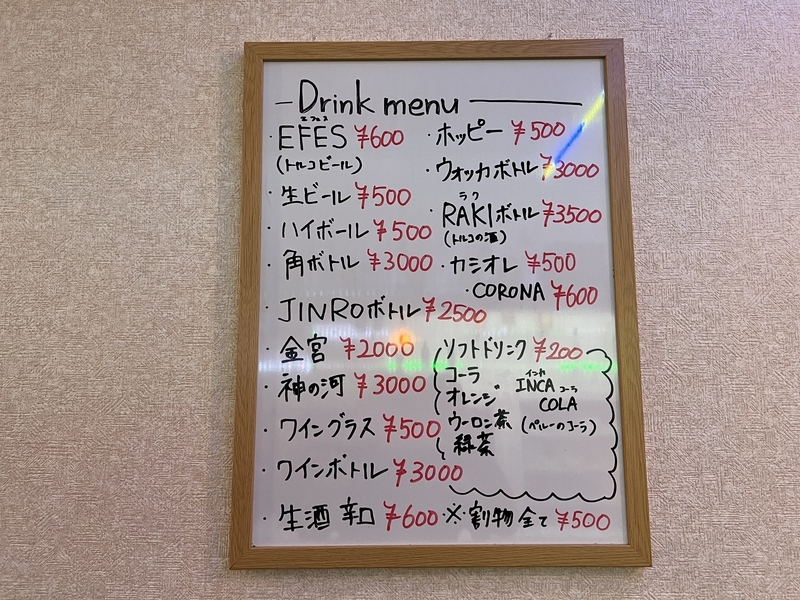 Drink menu
エフェス
EFES ¥600
(トルコビール)
生ビール ¥500
ハイボール ¥500
角ボトル ¥3000
JINROボトル ¥2500
金宮 ¥2000
神の河 ¥3000
ワイングラス ¥500
ワインボトル ¥3000
生酒 辛口 ¥600
ホッピー ¥500
ウォッカボトル ¥3000
ラク
RAKIボトル ¥3500
(トルコの酒)
カシオレ ¥500
CORONA ¥600
ソフトドリンク ¥200
コーラ
オレンジ
ウーロン茶
緑茶
インカ
INCA コーラ
COLA
(ペルーのコーラ)
※割物全て ¥500